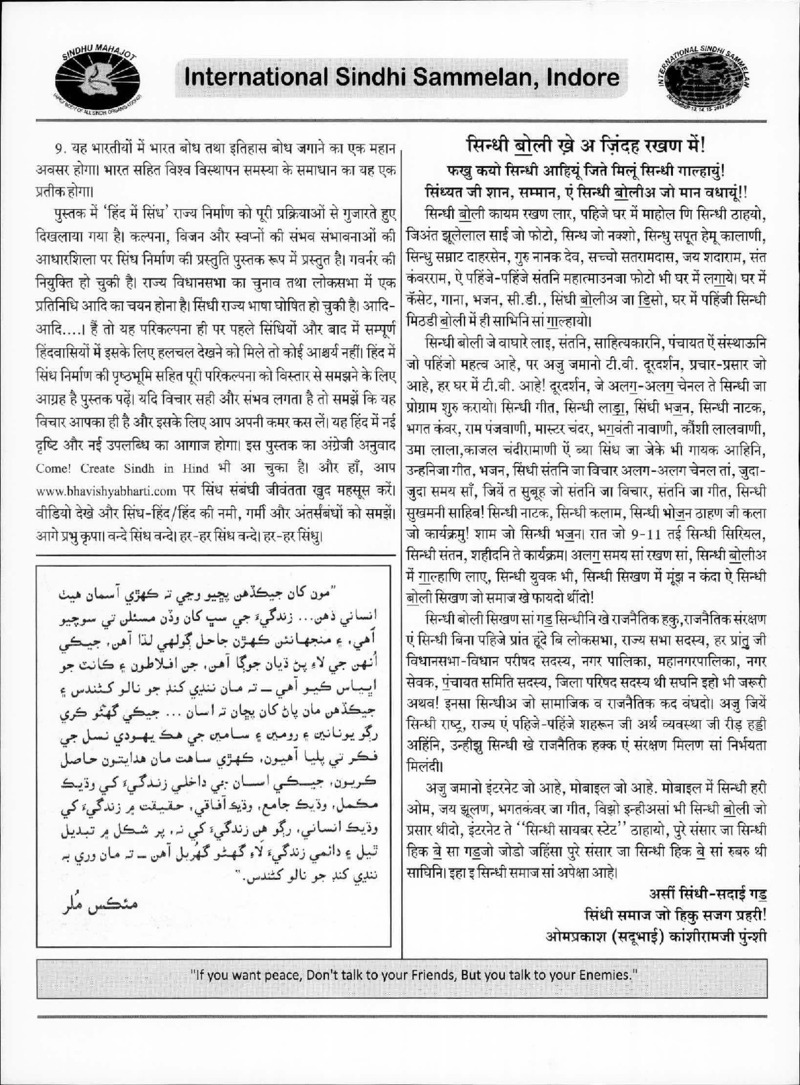 SINDHU MAHAJOT
International Sindhi Sammelan, Indore
INTERNATIONAL SINDHI SAMMELAN
9. यह भारतीयों में भारत बोध तथा इतिहास बोध जगाने का एक महान
अवसर होगा। भारत सहित विश्व विस्थापन समस्या के समाधान का यह एक
प्रतीक होगा।
पुस्तक में ‘हिंद में सिंध’ राज्य निर्माण को पूरी प्रक्रियाओं से गुजारते हुए
दिखलाया गया है। कल्पना, विजन और स्वप्नों की संभव संभावनाओं की
आधारशिला पर सिंध निर्माण की प्रस्तुति पुस्तक रूप में प्रस्तुत है। गवर्नर की
नियुक्ति हो चुकी है। राज्य विधानसभा का चुनाव तथा लोकसभा में एक
प्रतिनिधि आदि का चयन होना है। सिंधी राज्य भाषा घोषित हो चुकी है। आदि-
आदि....। हैं तो यह परिकल्पना ही पर पहले सिंधियों और बाद में सम्पूर्ण
हिंदवासियों में इसके लिए हलचल देखने को मिले तो कोई आश्चर्य नहीं। हिंद में
सिंध निर्माण की पृष्ठभूमि सहित पूरी परिकल्पना को विस्तार से समझने के लिए
आग्रह है पुस्तक पढ़ें। यदि विचार सही और संभव लगता है तो समझें कि यह
विचार आपका ही है और इसके लिए आप अपनी कमर कस लें। यह हिंद में नई
दृष्टि और नई उपलब्धि का आगाज होगा। इस पुस्तक का अंग्रेजी अनुवाद
Come! Create Sindh in Hind भी आ चुका है। और हाँ, आप
www.bhavishyabharti.com पर सिंध संबंधी जीवंतता खुद महसूस करें।
वीडियो देखे और सिंध-हिंद/हिंद की नमी, गर्मी और अंतर्संबंधों को समझें।
आगे प्रभु कृपा। वन्दे सिंध वन्दे। हर-हर सिंध वन्दे। हर-हर सिंधु।
”مون کان جيڪڏهن پڇيو وڃي تہ ڪهڙي آسمان هيٺ
انساني ذهن... زندگيءَ جي سڀ کان وڏن مسئلن تي سوچيو
آهي، ۽ منجهانئن ڪهڙن جا حل ڳولهي لڌا آهن، جيڪي
اُنهن جي لاءِ پڻ ڌيان جوڳا آهن، جن افلاطون ۽ ڪانٽ جو
اڀياس ڪيو آهي — تہ مان ننڍي کنڊ جو نالو کڻندس ۽
جيڪڏهن مان پاڻ کان پڇان تہ اسان ... جيڪي گهڻو ڪري
رڳو يونانين ۽ رومين ۽ سامين جي هڪ يهودي نسل جي
فڪر تي پليا آهيون، ڪهڙي ساهت مان هدايتون حاصل
ڪريون، جيڪي اسان جي داخلي زندگيءَ کي وڌيڪ
مڪمل، وڌيڪ جامع، وڌيڪ آفاقي، حقيقت ۾ زندگيءَ کي
وڌيڪ انساني، رڳو هن زندگيءَ کي نہ، پر شڪل ۾ تبديل
ٿيل ۽ دائمي زندگيءَ لاءِ گهڻو گهربل آهن — تہ مان وري بہ
ننڍي کنڊ جو نالو کڻندس.“
مئڪس مُلر
सिन्धी बो॒ली खे अ ज़िंदह रखण में!
फखु कयो सिन्धी आहियूं जिते मिलूं सिन्धी गाल्हायुं!
सिंध्यत जी शान, सम्मान, एं सिन्धी बो॒लीअ जो मान वधायूं!!
सिन्धी बो॒ली कायम रखण लार, पहिजे घर में माहोल णि सिन्धी ठाहयो,
जिअंत झूलेलाल साई जो फोटो, सिन्ध जो नक्शो, सिन्धु सपूत हेमू कालाणी,
सिन्धु सम्राट दाहरसेन, गुरु नानक देव, सच्चो सतरामदास, जय शदाराम, संत
कंवरराम, ऐ पहिंजे-पहिंजे संतनि महात्माउनजा फोटो भी घर में लगा॒ये। घर में
कॅसेट, गाना, भजन, सी.डी., सिंधी बो॒लीअ जा डि॒सो, घर में पहिंजी सिन्धी
मिठडी बो॒ली में ही साभिनि सां गा॒ल्हायो।
सिन्धी बोली जे वाधारे लाइ, संतनि, साहित्यकारनि, पंचायत ऐं संस्थाऊनि
जो पहिंजो महत्व आहे, पर अजु जमानो टी.वी. दूरदर्शन, प्रचार-प्रसार जो
आहे, हर घर में टी.वी. आहे! दूरदर्शन, जे अलग॒-अलग॒ चेनल ते सिन्धी जा
प्रोग्राम शुरु करायो। सिन्धी गीत, सिन्धी लाडा॒, सिंधी भज॒न, सिन्धी नाटक,
भगत कंवर, राम पंजवाणी, मास्टर चंदर, भग॒वंती नावाणी, कौंशी लालवाणी,
उमा लाला,काजल चंदीरामाणी ऐं ब्या सिंध जा जेके भी गायक आहिनि,
उन्हनिजा गीत, भजन, सिंधी संतनि जा विचार अलग-अलग चेनल तां, जुदा-
जुदा समय साँ, जियें त सुबूह जो संतनि जा विचार, संतनि जा गीत, सिन्धी
सुखमनी साहिब! सिन्धी नाटक, सिन्धी कलाम, सिन्धी भोज॒न ठाहण जी कला
जो कार्यक्रमु! शाम जो सिन्धी भज॒न। रात जो 9-11 तई सिन्धी सिरियल,
सिन्धी संतन, शहीदनि ते कार्यक्रम। अलग॒ समय सां रखण सां, सिन्धी बो॒लीअ
में गा॒ल्हाणि लाए, सिन्धी युवक भी, सिन्धी सिखण में मूंझ न कंदा ऐ सिन्धी
बो॒ली सिखण जो समाज खे फायदो थींदो!
सिन्धी बोली सिखण सां गडु॒ सिन्धीनि खे राजनैतिक हकु,राजनैतिक संरक्षण
एं सिन्धी बिना पहिजे प्रांत हूंदे बि लोकसभा, राज्य सभा सदस्य, हर प्रांतु जी
विधानसभा-विधान परीषद सदस्य, नगर पालिका, महानगरपालिका, नगर
सेवक, पंचायत समिति सदस्य, जिला परिषद सदस्य थी सघनि इहो भी जरूरी
अथव! इनसा सिन्धीअ जो सामाजिक व राजनैतिक कद वंधदो। अजु जियें
सिन्धी राष्ट्र, राज्य एं पहिजे-पहिंजे शहरून जी अर्थ व्यवस्था जी रीड़ हड्डी
अहिंनि, उन्हीझु सिन्धी खे राजनैतिक हक्क एं संरक्षण मिलण सां निर्भयता
मिलंदी।
अजु जमानो इंटरनेट जो आहे, मोबाइल जो आहे. मोबाइल में सिन्धी हरी
ओम, जय झूलण, भगतकंवर जा गीत, विझो इन्हीअसां भी सिन्धी बो॒ली जो
प्रसार थीदो, इंटरनेट ते ‘‘सिन्धी सायबर स्टेट’’ ठाहायो, पुरे संसार जा सिन्धी
हिक बे॒ सा गड॒जो जोडो जहिंसा पुरे संसार जा सिन्धी हिक बे॒ सां रुबरु थी
साधिनि। इहा इ सिन्धी समाज सां अपेक्षा आहे।
असीं सिंधी-सदाई गड॒
सिंधी समाज जो हिकु सजग प्रहरी!
ओमप्रकाश (सदूभाई) कांशीरामजी पुंन्शी
"If you want peace, Don't talk to your Friends, But you talk to your Enemies."